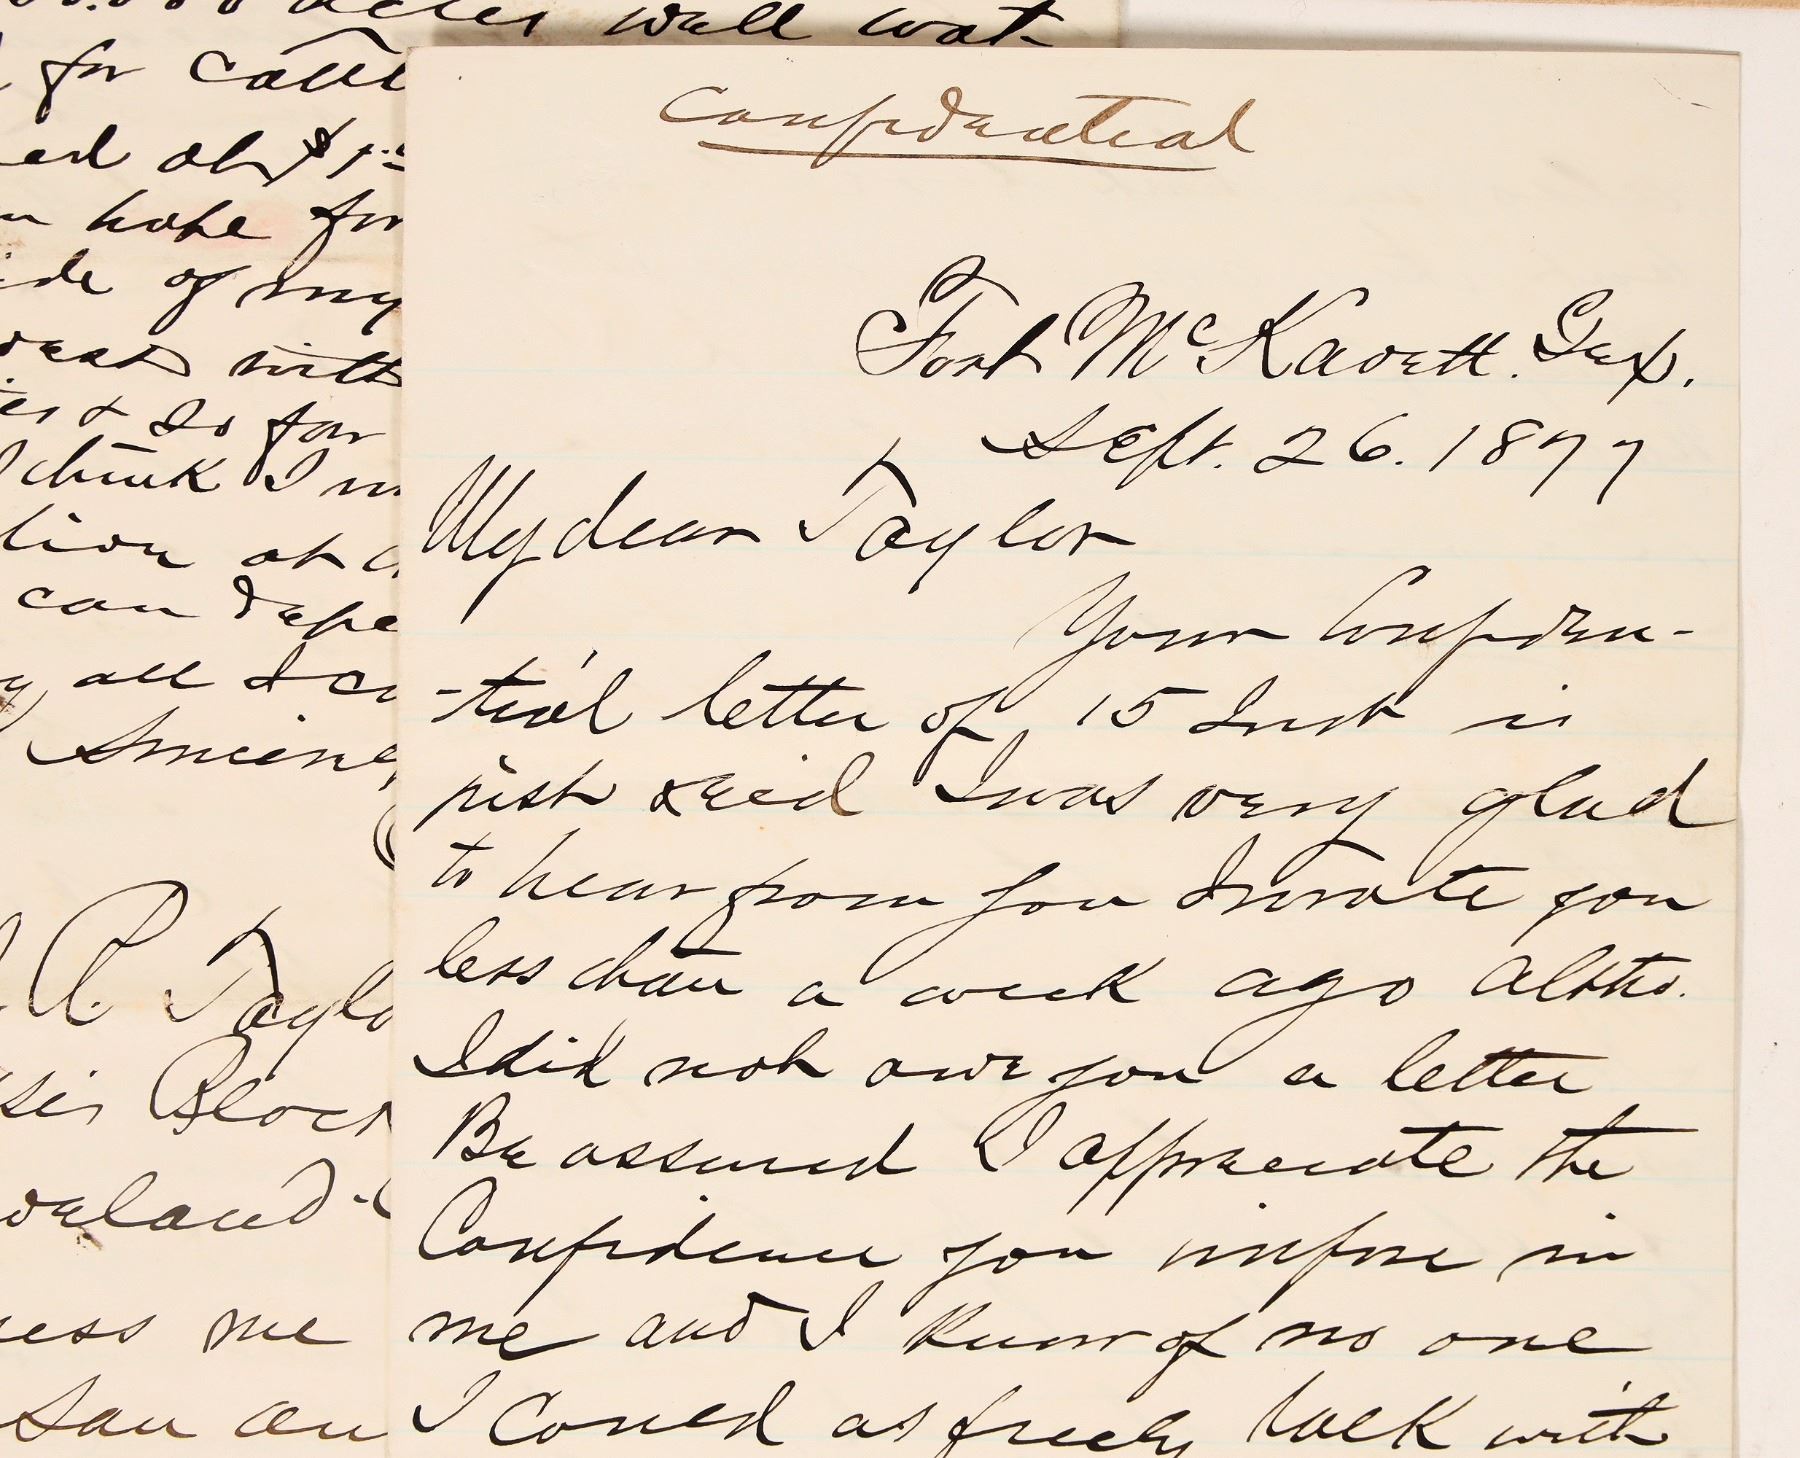 00.000 acres well wat-
for cattl
ed at $1.
hope for
ide of my
west with
& So far
I think I
tion at
can depe
all I c
Sincere
R. Taylo
Block
Loveland
ress me
San an
Confidential
Fort McKavett. Tex.
Sept. 26. 1877
My dear Taylor
Your Confiden-
-tial letter of 15 Inst is
just recd I was very glad
to hear from you I wrote you
less than a week ago altho.
I did not owe you a letter
Be assured I appreciate the
Confidence you impose in
me and I know of no one
I coued as freely talk with